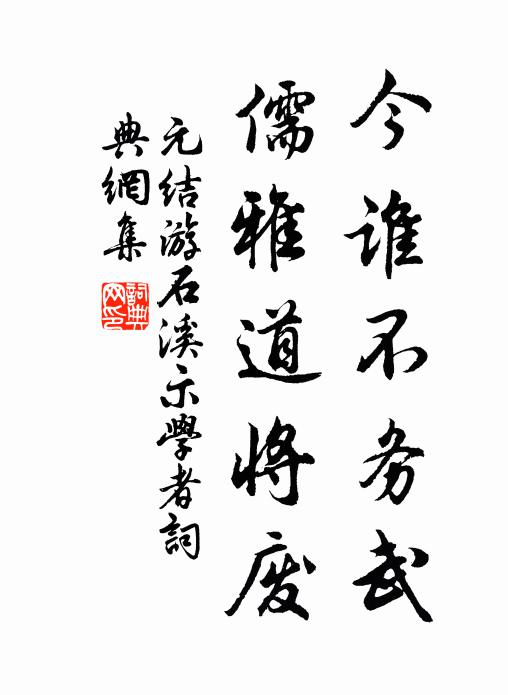 今谁不务武
儒雅道将废
元结游石溪示學者詞
典網集
詞典網印